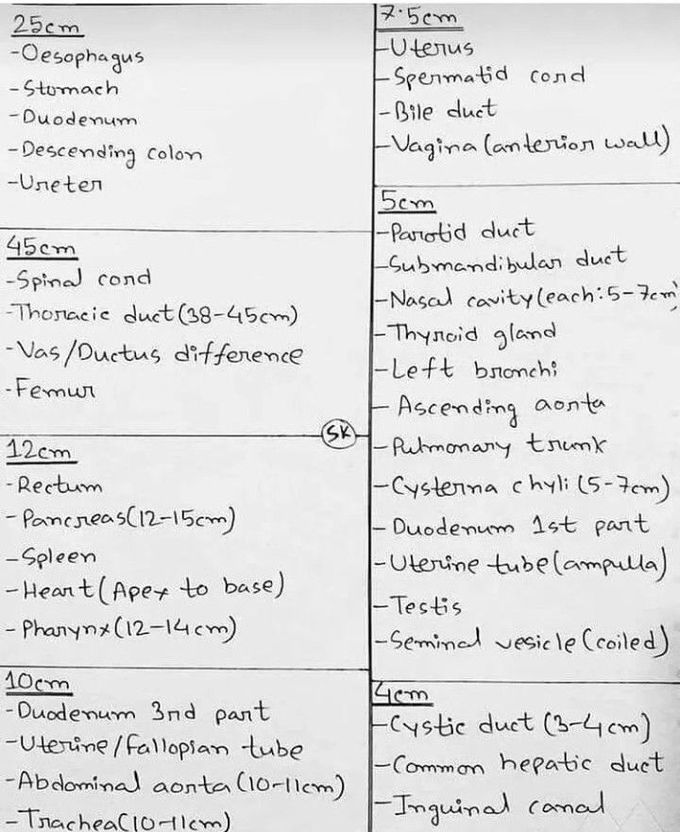 25cm
-Oesophagus
-Stomach
-Duodenum
-Descending colon
-Ureter
45cm
-Spinal cord
-Thoracic duct(38-45cm)
-Vas/Ductus difference
-Femur
SK
12cm
-Rectum
-Pancreas(12-15cm)
-Spleen
-Heart(Apex to base)
-Pharynx(12-14cm)
10cm
-Duodenum 3rd part
-Uterine/Fallopian tube
-Abdominal aorta(10-11cm)
-Trachea(10-11cm)
7.5cm
-Uterus
-Spermatid cord
-Bile duct
-Vagina(anterior wall)
5cm
-Parotid duct
-Submandibular duct
-Nasal cavity(each:5-7cm)
-Thyroid gland
-Left bronchi
-Ascending aorta
-Pulmonary trunk
-Cysterna chyli(5-7cm)
-Duodenum 1st part
-Uterine tube(ampulla)
-Testis
-Seminal vesicle(coiled)
4cm
-Cystic duct(3-4cm)
-Common hepatic duct
-Inguinal canal